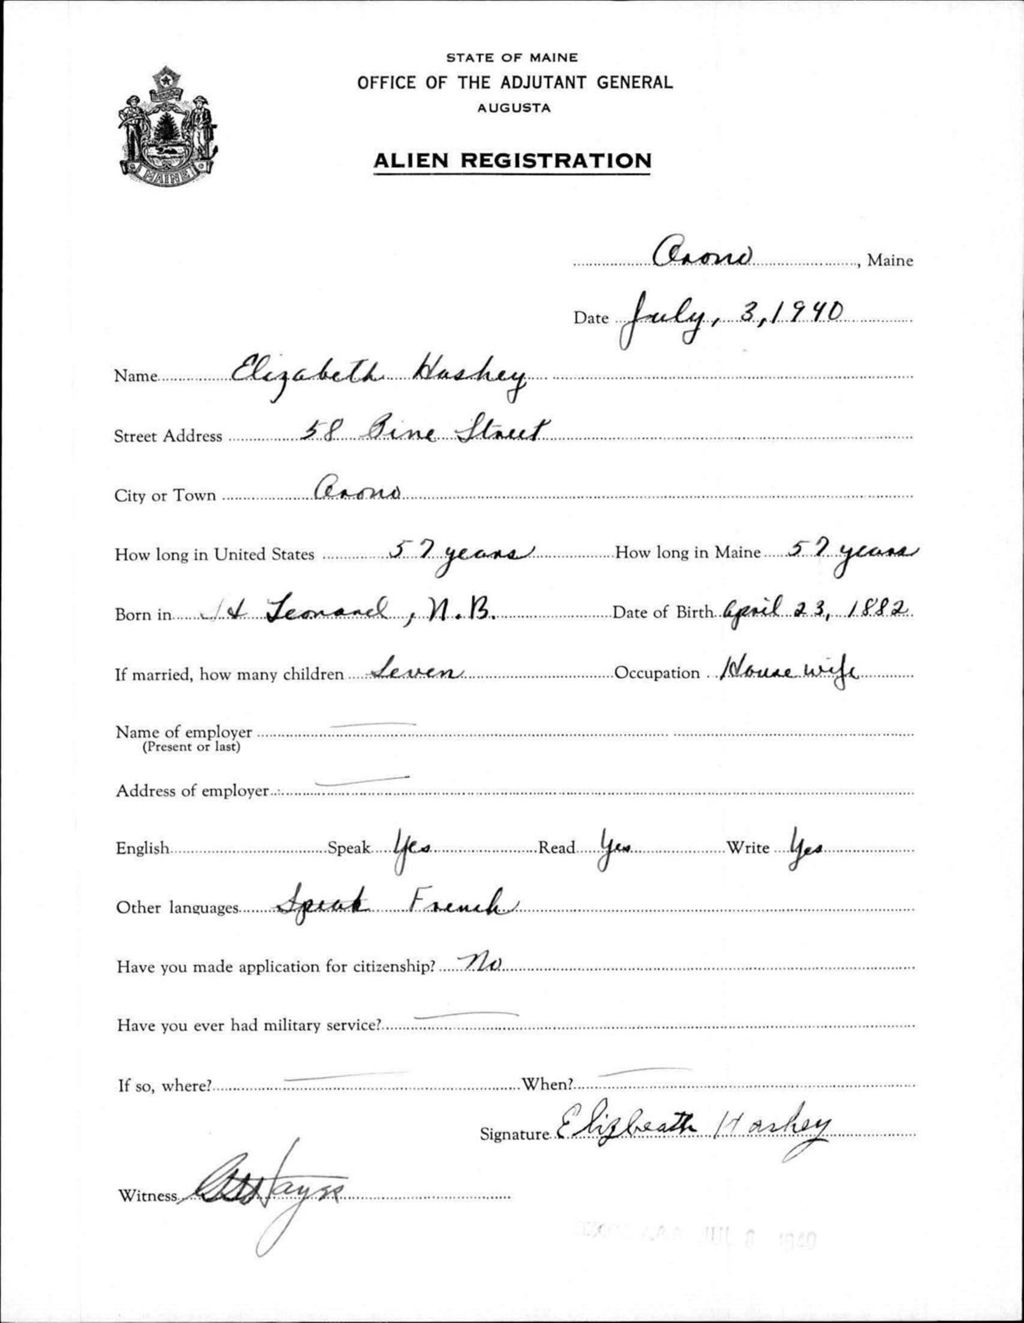 STATE OF MAINE
OFFICE OF THE ADJUTANT GENERAL
AUGUSTA
ALIEN REGISTRATION
MAINE
Orono, Maine
Date July, 3, 1940
Name Elizabeth Haskey
Street Address 58 Pine Street
City or Town Orono
How long in United States 57 years How long in Maine 57 years
Born in St Leonard, N.B. Date of Birth April 23, 1882
If married, how many children Seven Occupation House wife
Name of employer
(Present or last)
Address of employer
English Speak Yes Read Yes Write Yes
Other languages Speak French
Have you made application for citizenship? No
Have you ever had military service?
If so, where? When?
Signature Elizbeath Haskey
Witness